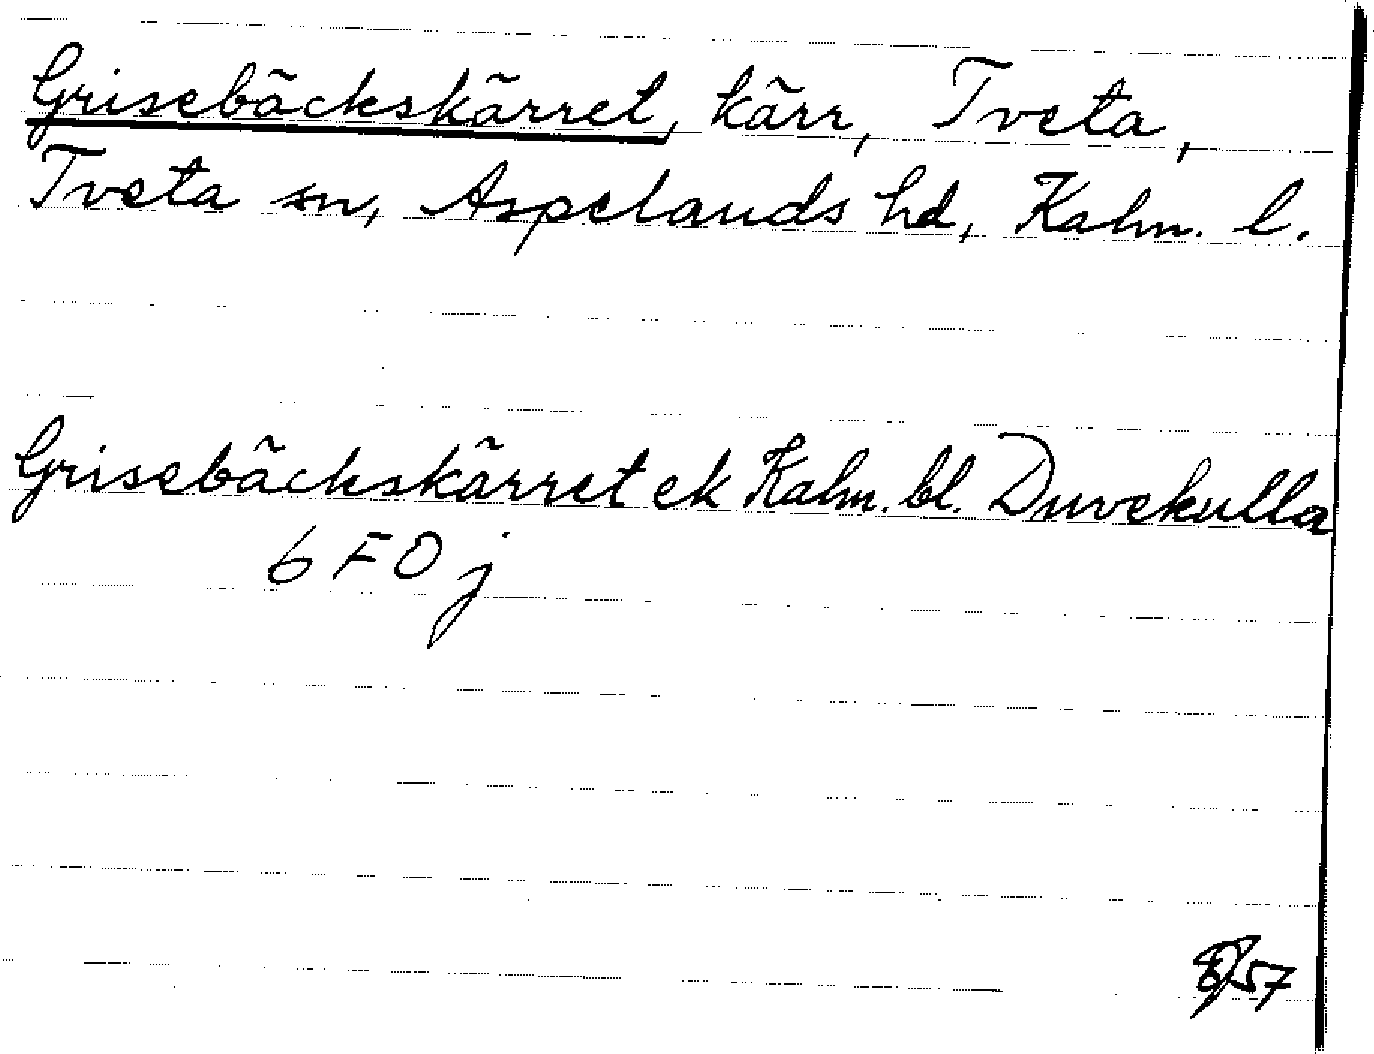 Grisebäckskärret, kärr, Tveta,
Tveta sn, Aspelands hd, Kalm. l.
Grisebäckskärret ek Kalm. bl. Duvekulla
6 F O j
57